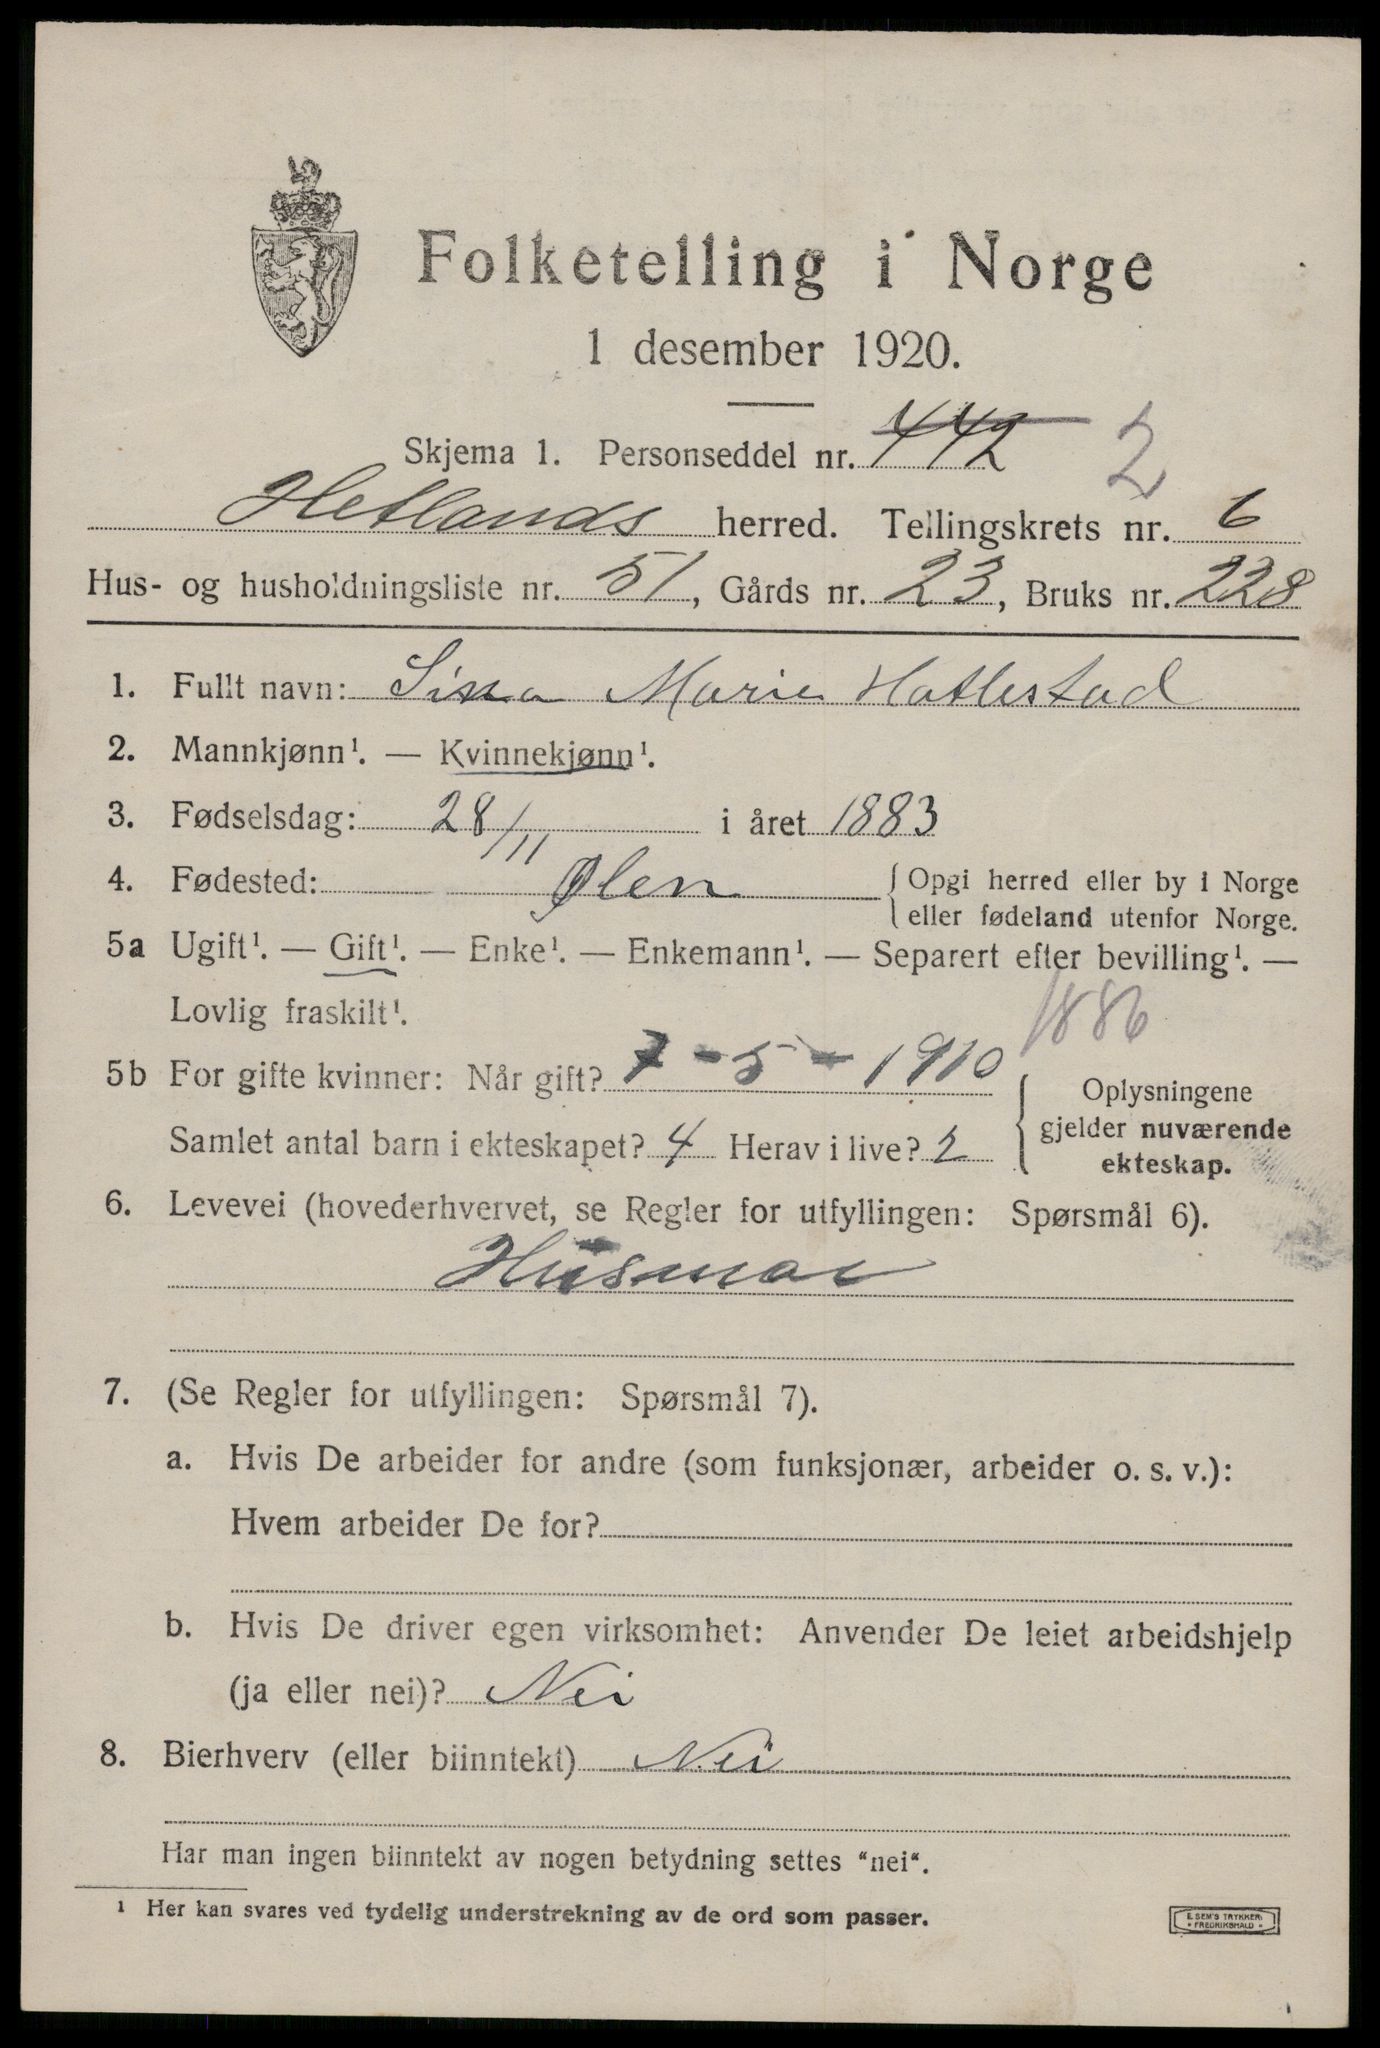 Folketelling i Norge
1 desember 1920.
Skjema 1. Personseddel nr. 442 2
Hetlands herred. Tellingskrets nr. 6
Hus- og husholdningsliste nr. 51, Gårds nr. 23, Bruks nr. 228
1. Fullt navn: Sina Marie Hatlestad
2. Mannkjønn¹. — Kvinnekjønn¹.
3. Fødselsdag: 28/11 i året 1883
4. Fødested: Ølen { Opgi herred eller by i Norge
eller fødeland utenfor Norge.
5a Ugift¹. — Gift¹. — Enke¹. — Enkemann¹. — Separert efter bevilling¹. —
Lovlig fraskilt¹.
1886
5b For gifte kvinner: Når gift? 7 - 5 - 1910
Samlet antal barn i ekteskapet? 4 Herav i live? 2
{ Oplysningene
gjelder nuværende
ekteskap.
6. Levevei (hovederhvervet, se Regler for utfyllingen: Spørsmål 6).
Husmor
7. (Se Regler for utfyllingen: Spørsmål 7).
a. Hvis De arbeider for andre (som funksjonær, arbeider o. s. v.):
Hvem arbeider De for?
b. Hvis De driver egen virksomhet: Anvender De leiet arbeidshjelp
(ja eller nei)? Nei
8. Bierhverv (eller biinntekt) Nei
Har man ingen biinntekt av nogen betydning settes "nei".
¹ Her kan svares ved tydelig understrekning av de ord som passer.
E. SEM'S TRYKKERI
* FREDRIKSHALD *